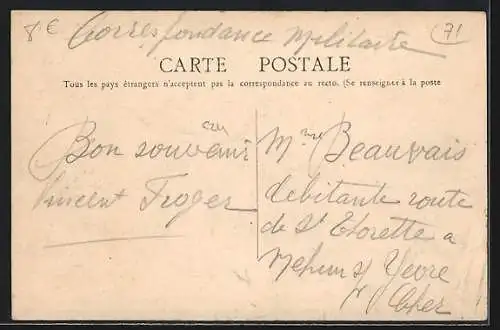 8 €
71
Correspondance Militaire
CARTE POSTALE
Tous les pays étrangers n'acceptent pas la correspondance au recto. (Se renseigner à la poste
Bon souvenir
Vincent Troger
Mme Beauvais
debitante route
de St Thorette a
Mehun s/ Yevre
Cher